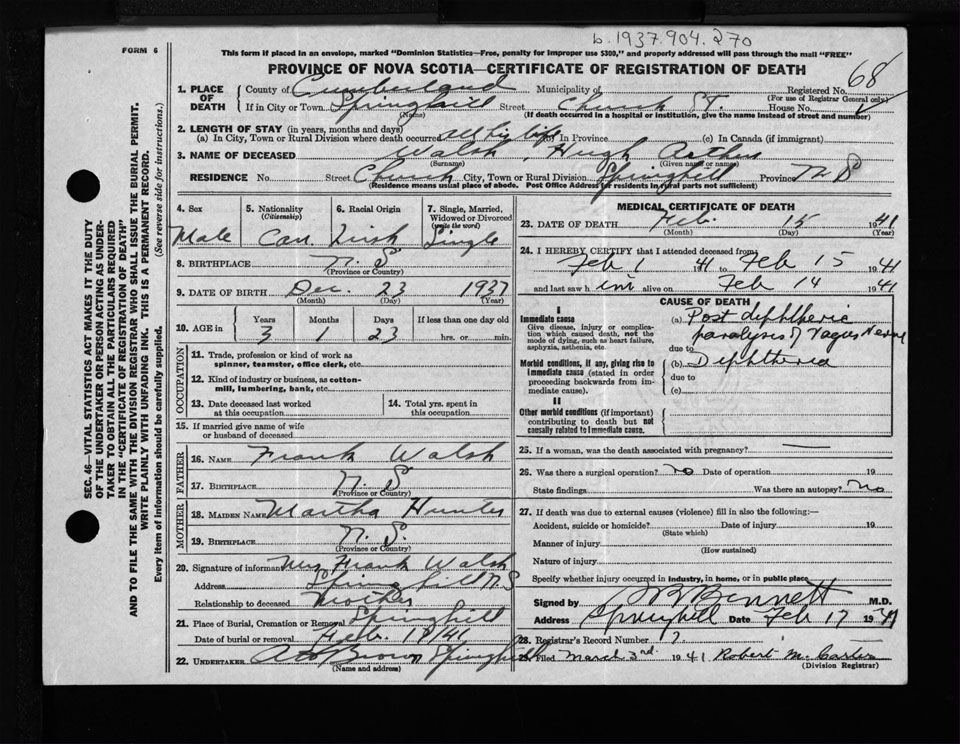 b. 1937. 904. 270
FORM 6
This form if placed in an envelope, marked "Dominion Statistics—Free, penalty for improper use $300," and properly addressed will pass through the mail "FREE"
PROVINCE OF NOVA SCOTIA—CERTIFICATE OF REGISTRATION OF DEATH
68
1. PLACE OF DEATH County of Cumberland Municipality of Registered No.
(For use of Registrar General only)
If in City or Town Springhill Street Church St. House No.
(Name) (If death occurred in a hospital or institution, give the name instead of street and number)
2. LENGTH OF STAY (in years, months and days)
(a) In City, Town or Rural Division where death occurred all his life (b) In Province (c) In Canada (if immigrant)
3. NAME OF DECEASED Walsh, Hugh Arthur
(Surname) (Given name or names)
RESIDENCE No. Street Church City, Town or Rural Division Springhill Province N S
(Residence means usual place of abode. Post Office Address for residents in rural parts not sufficient)
4. Sex
Male
5. Nationality
(Citizenship)
Can.
6. Racial Origin
Irish
7. Single, Married, Widowed or Divorced
(write the word)
Single
8. BIRTHPLACE N. S.
(Province or Country)
9. DATE OF BIRTH Dec. 23 1937
(Month) (Day) (Year)
10. AGE in Years Months Days If less than one day old
3 1 23 hrs. or min.
OCCUPATION
11. Trade, profession or kind of work as spinner, teamster, office clerk, etc.
12. Kind of industry or business, as cotton-mill, lumbering, bank, etc.
13. Date deceased last worked at this occupation
14. Total yrs. spent in this occupation
15. If married give name of wife or husband of deceased
FATHER
16. NAME Frank Walsh
17. BIRTHPLACE N. S.
(Province or Country)
MOTHER
18. MAIDEN NAME Martha Hunter
19. BIRTHPLACE N. S.
(Province or Country)
20. Signature of informant Mrs Frank Walsh
Address Springhill N S
Relationship to deceased Mother
21. Place of Burial, Cremation or Removal Springhill
Date of burial or removal Feb. 18/41
22. UNDERTAKER Brown Springhill
(Name and address)
MEDICAL CERTIFICATE OF DEATH
23. DATE OF DEATH Feb. 15 1941
(Month) (Day) (Year)
24. I HEREBY CERTIFY that I attended deceased from
Feb 1 1941 to Feb 15 1941
and last saw him alive on Feb 14 1941
CAUSE OF DEATH
I
Immediate cause
Give disease, injury or complication which caused death, not the mode of dying, such as heart failure, asphyxia, asthenia, etc.
(a) Post diphtheric
paralysis of Vagus Nerve
due to
Morbid conditions, if any, giving rise to immediate cause (stated in order proceeding backwards from immediate cause).
(b) Diphtheria
due to
(c)
II
Other morbid conditions (if important) contributing to death but not causally related to immediate cause.
25. If a woman, was the death associated with pregnancy?
26. Was there a surgical operation? no Date of operation 19
State findings Was there an autopsy? no
27. If death was due to external causes (violence) fill in also the following:—
Accident, suicide or homicide? Date of injury 19
(State which)
Manner of injury
(How sustained)
Nature of injury
Specify whether injury occurred in industry, in home, or in public place
Signed by Bennett M.D.
Address Springhill Date Feb 17 1941
28. Registrar's Record Number 7.
29. Filed March 3rd 1941 Robert M.
(Division Registrar)
SEC. 46—VITAL STATISTICS ACT MAKES IT THE DUTY
OF THE UNDERTAKER OR PERSON ACTING AS UNDER-
TAKER TO OBTAIN ALL THE PARTICULARS REQUIRED
IN THE "CERTIFICATE OF REGISTRATION OF DEATH"
AND TO FILE THE SAME WITH THE DIVISION REGISTRAR WHO SHALL ISSUE THE BURIAL PERMIT.
WRITE PLAINLY WITH UNFADING INK. THIS IS A PERMANENT RECORD.
Every item of Information should be carefully supplied. (See reverse side for instructions.)